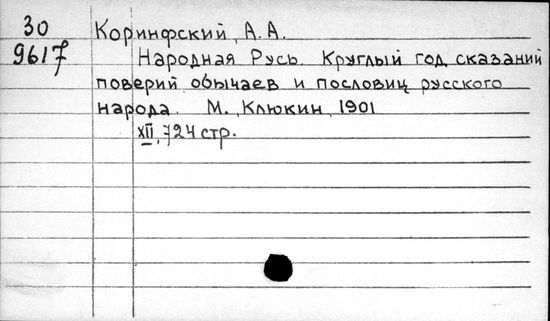 30 Коринфский, А. А.
9617 Народная Русь. Круглый год сказаний
поверий обычаев и пословиц русского
народа. М., Клюкин, 1901
XII, 724 стр.